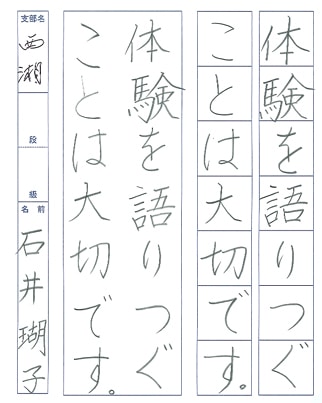 体験を語りつぐ
ことは大切です。
体験を語りつぐ
ことは大切です。
支部名
西湘
段
級
名前
石井瑚子